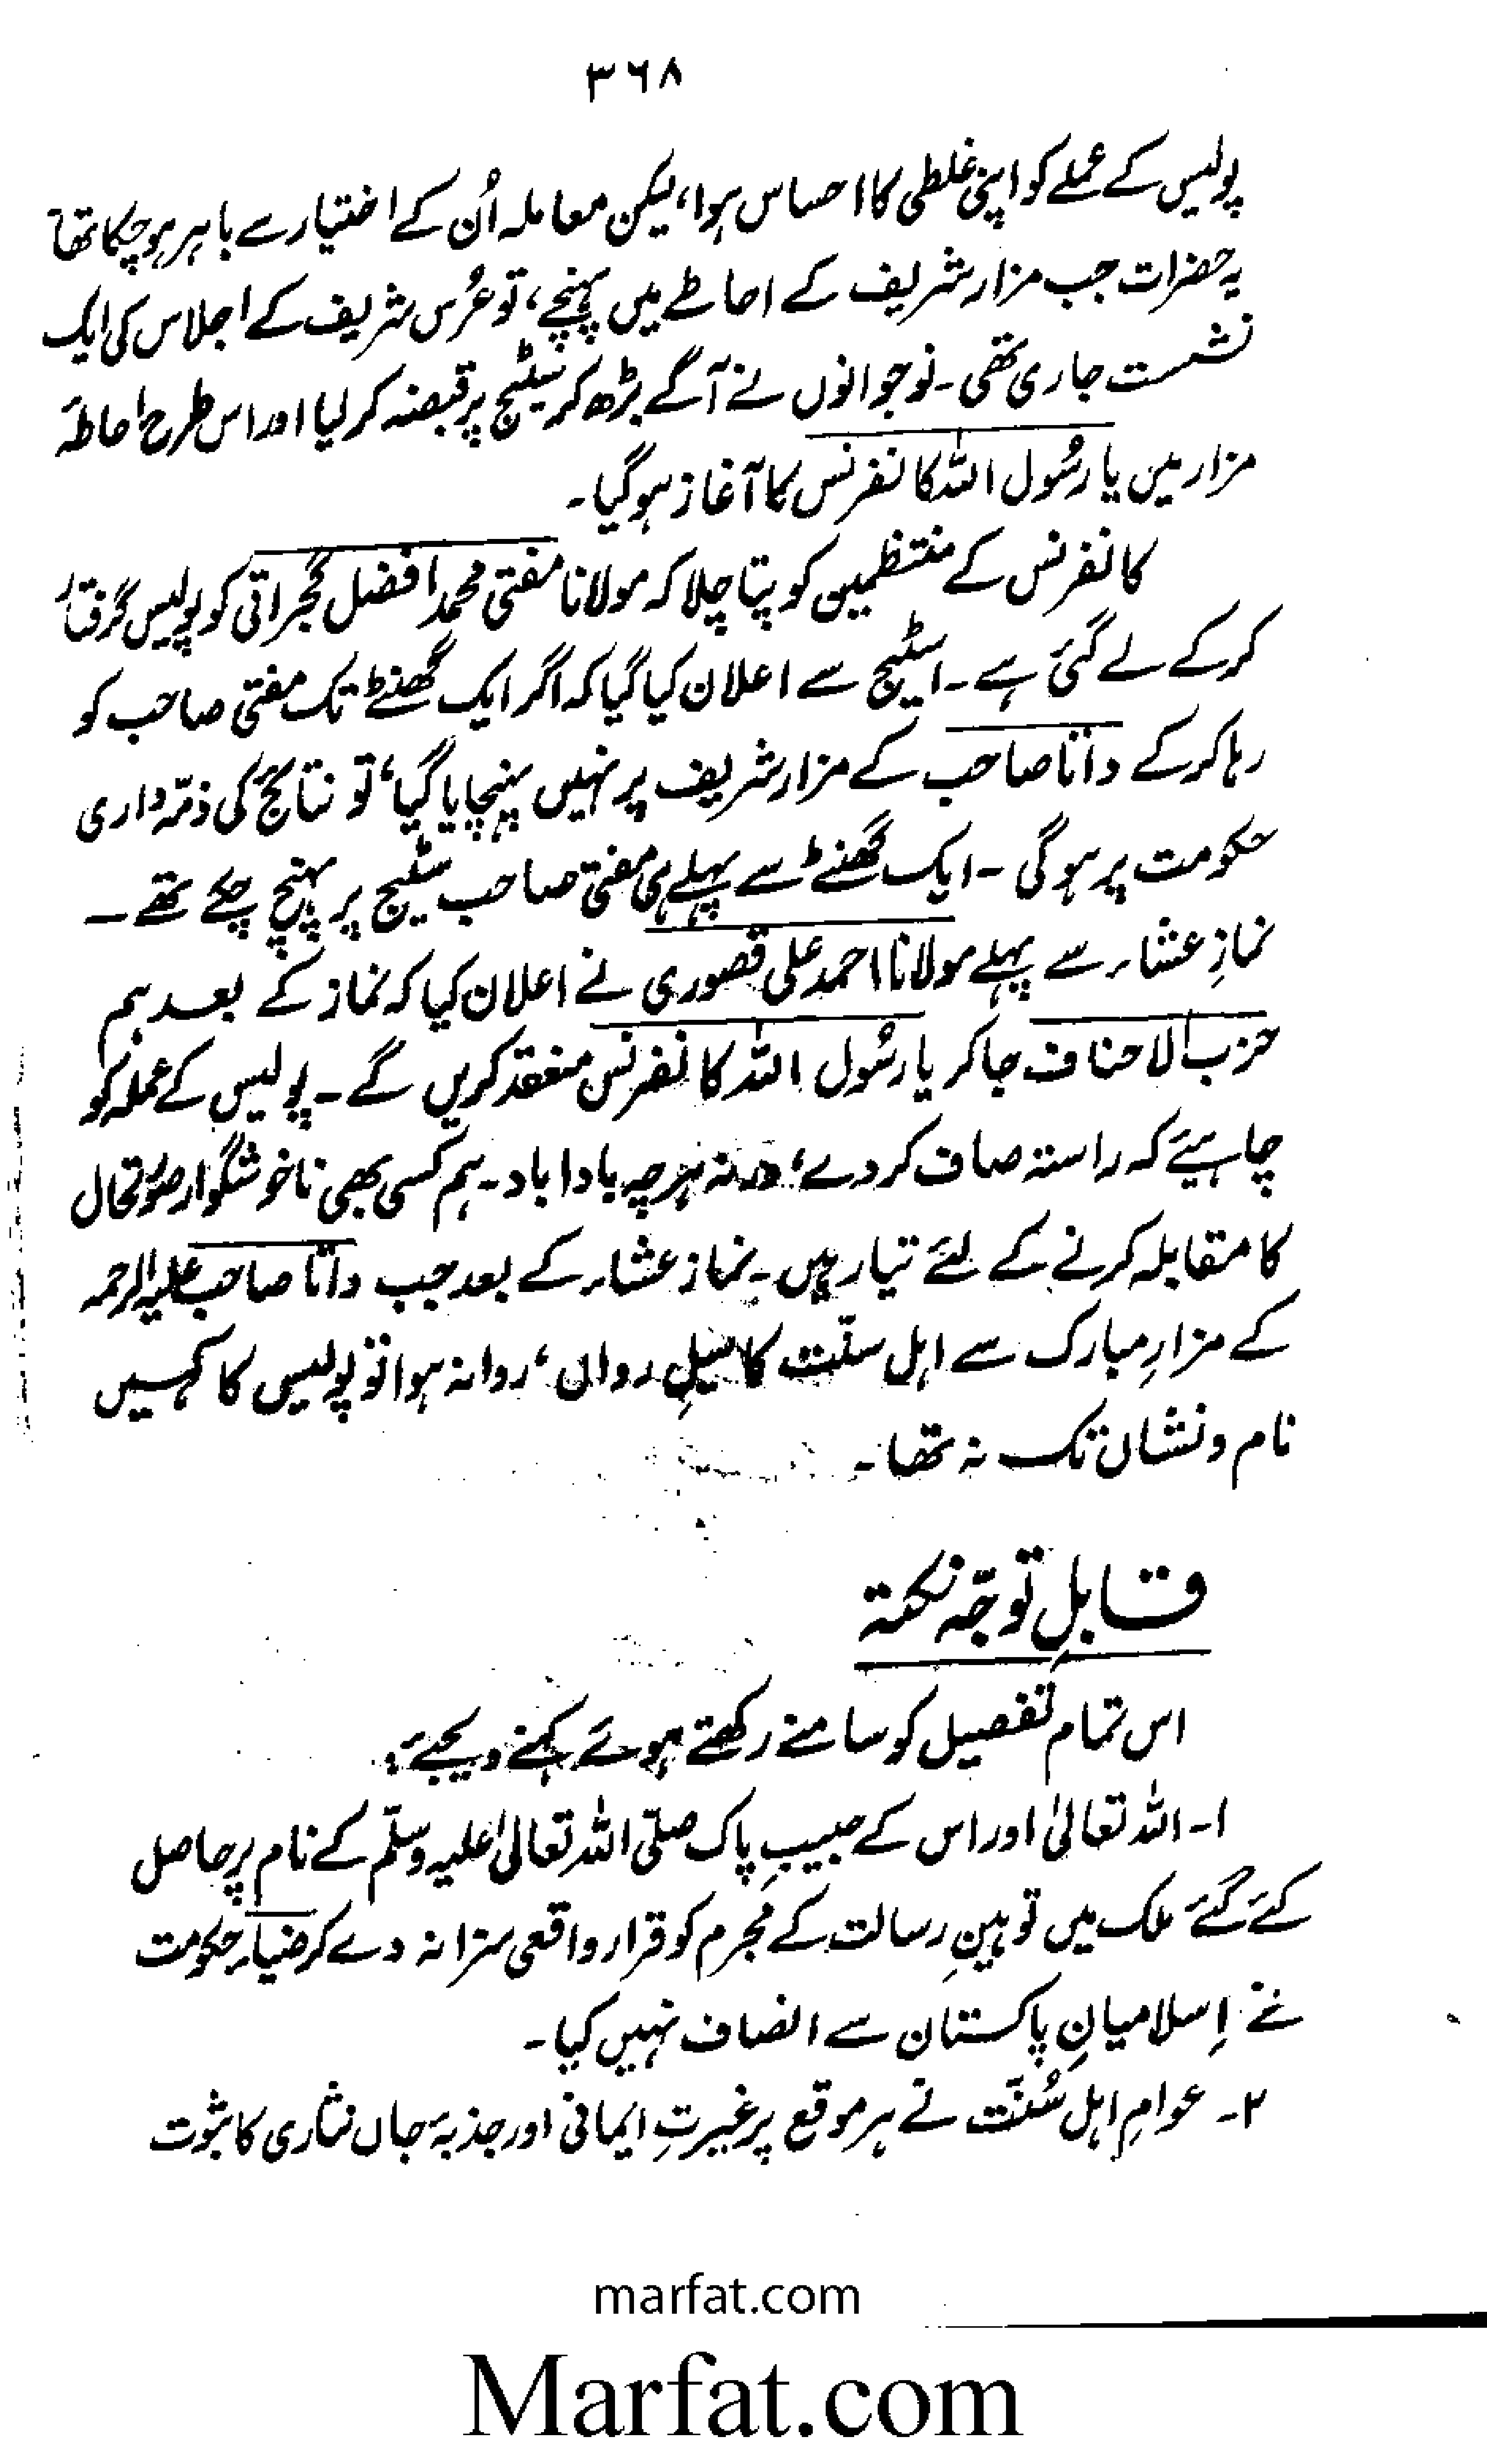 ۳۶۸
پولیس کے عملے کو اپنی غلطی کا احساس ہوا، لیکن معاملہ اُن کے اختیار سے باہر ہو چکا تھا
یہ حضرات جب مزار شریف کے احاطے میں پہنچے، تو عُرس شریف کے اجلاس کی ایک
نشست جاری تھی۔ نوجوانوں نے آگے بڑھ کر سٹیج پر قبضہ کر لیا اور اس طرح احاطۂ
مزار میں یا رسُول اللہ کانفرنس کا آغاز ہو گیا۔
کانفرنس کے منتظمین کو پتا چلا کہ مولانا مفتی محمد افضل گجراتی کو پولیس گرفتار
کر کے لے گئی ہے۔ اسٹیج سے اعلان کیا گیا کہ اگر ایک گھنٹے تک مفتی صاحب کو
رہا کر کے داتا صاحب کے مزار شریف پر نہیں پہنچایا گیا، تو نتائج کی ذمّہ داری
حکومت پر ہو گی۔ ایک گھنٹے سے پہلے ہی مفتی صاحب سٹیج پر پہنچ چکے تھے۔
نمازِ عشاء سے پہلے مولانا احمد علی قصوری نے اعلان کیا کہ نماز کے بعد ہم
حزب الاحناف جا کر یا رسُول اللہ کانفرنس منعقد کریں گے۔ پولیس کے عملہ کو
چاہیئے کہ راستہ صاف کر دے، ورنہ ہرچہ بادا باد۔ ہم کسی بھی ناخوشگوار صورتحال
کا مقابلہ کرنے کے لئے تیار ہیں۔ نماز عشاء کے بعد جب داتا صاحب علیہ الرحمہ
کے مزارِ مبارک سے اہل سنّت کا سیلِ رواں، روانہ ہوا تو پولیس کا کہیں
نام و نشان تک نہ تھا۔
قابلِ توجّہ نکتہ
اس تمام تفصیل کو سامنے رکھتے ہوئے کہنے دیجئے:
۱۔ اللہ تعالیٰ اور اس کے حبیبِ پاک صلّی اللہ تعالیٰ علیہ وسلّم کے نام پر حاصل
کئے گئے ملک میں توہینِ رسالت کے مجرم کو قرار واقعی سزا نہ دے کر ضیاء حکومت
نے اِسلامیانِ پاکستان سے انصاف نہیں کیا۔
۲۔ عوامِ اہل سُنّت نے ہر موقع پر غیرتِ ایمانی اور جذبۂ جاں نثاری کا ثبوت
marfat.com
Marfat.com